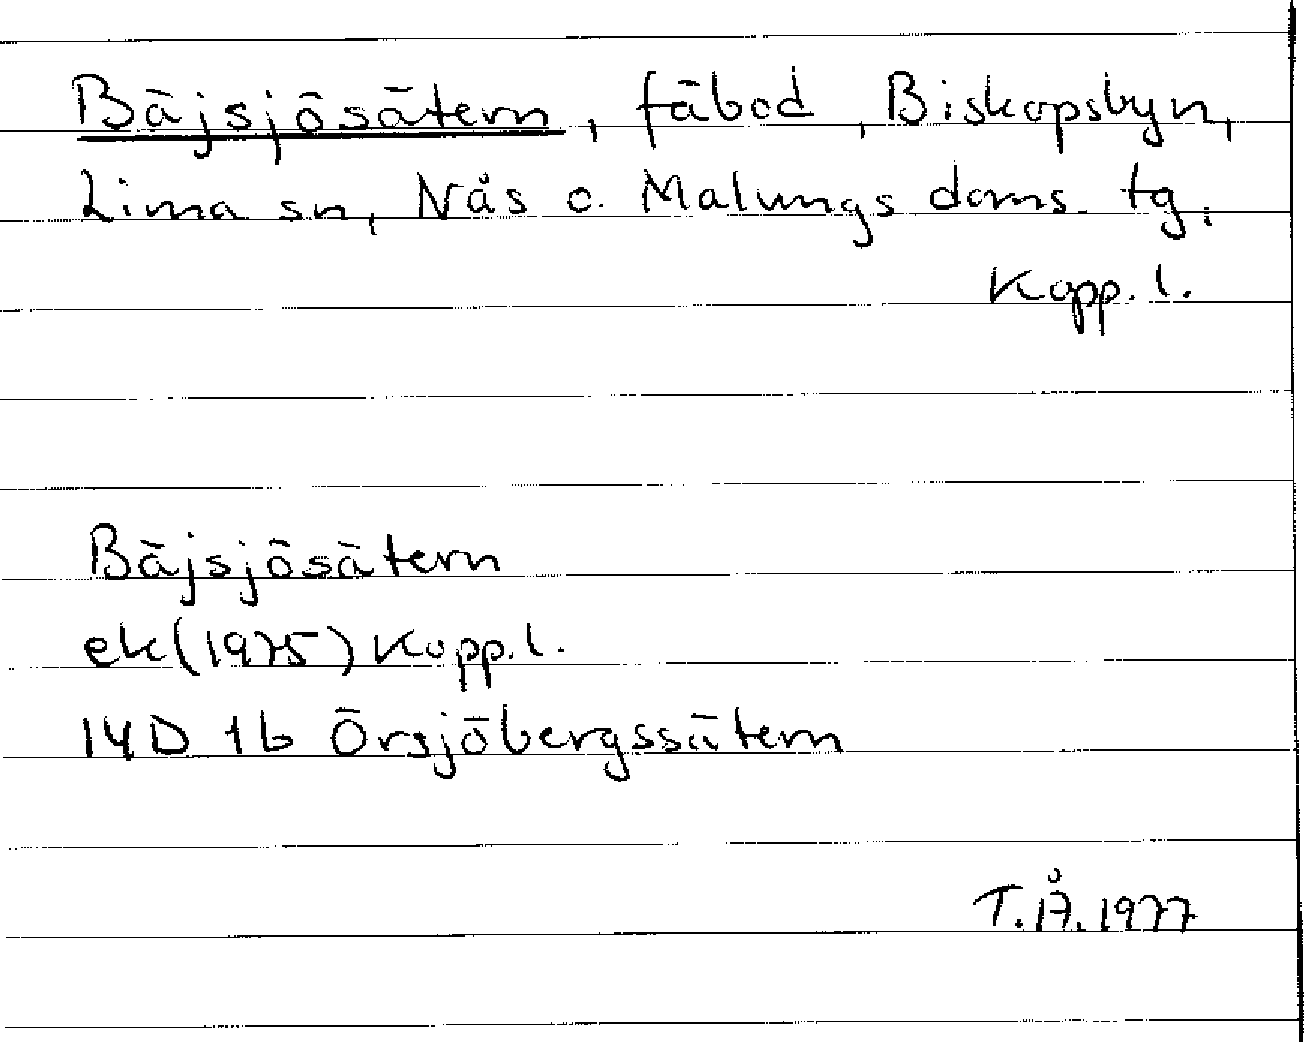 Bäjsjösätern, fäbod, Biskopsbyn,
Lima sn, Nås o. Malungs doms. tg.
Kopp. l.
Bäjsjösätern
ek(1975) Kopp. l.
14D 1b Örsjöbergssätern
T.Å. 1977